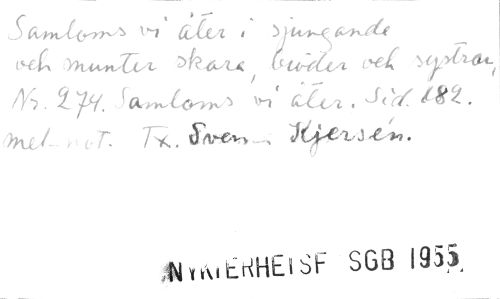 Samloms vi åter i sjungande
och munter skara, bröder och systrar,
Nr. 274. Samloms vi åter. Sid. 182.
mel. not. Tx. Sven Kjersén.
NYKTERHETSF SGB 1955